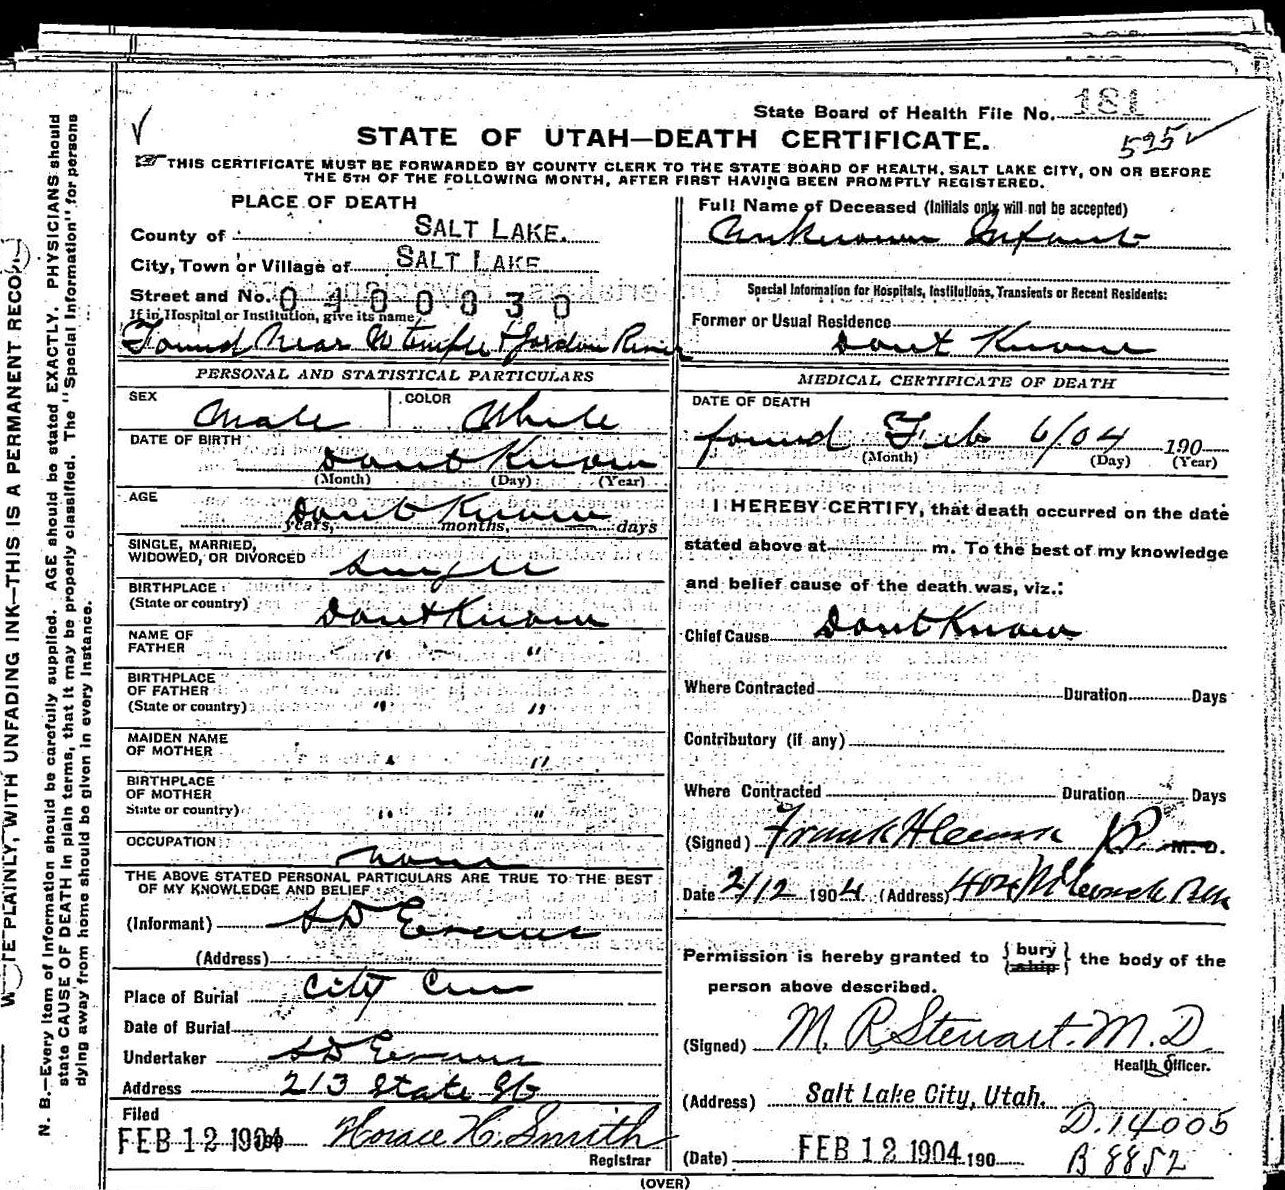 State Board of Health File No. 181
595
STATE OF UTAH—DEATH CERTIFICATE.
THIS CERTIFICATE MUST BE FORWARDED BY COUNTY CLERK TO THE STATE BOARD OF HEALTH, SALT LAKE CITY, ON OR BEFORE
THE 5TH OF THE FOLLOWING MONTH, AFTER FIRST HAVING BEEN PROMPTLY REGISTERED.
PLACE OF DEATH
County of SALT LAKE.
City, Town or Village of SALT LAKE
Street and No. 0400830
If in Hospital or Institution, give its name
Found Near N Temple & Jordon River
PERSONAL AND STATISTICAL PARTICULARS
SEX Male COLOR White
DATE OF BIRTH Dont Know
(Month) (Day) (Year)
AGE Dont Know
years, months, days
SINGLE, MARRIED,
WIDOWED, OR DIVORCED Single
BIRTHPLACE
(State or country) Dont Know
NAME OF
FATHER " "
BIRTHPLACE
OF FATHER
(State or country) " "
MAIDEN NAME
OF MOTHER " "
BIRTHPLACE
OF MOTHER
State or country) " "
OCCUPATION none
THE ABOVE STATED PERSONAL PARTICULARS ARE TRUE TO THE BEST
OF MY KNOWLEDGE AND BELIEF
(Informant) S D Evans
(Address)
Place of Burial City Cem
Date of Burial
Undertaker S D Evans
Address 213 State St
Filed
FEB 12 1904 190 Horace H. Smith
Registrar
Full Name of Deceased (Initials only will not be accepted)
Unknown Infant
Special Information for Hospitals, Institutions, Transients or Recent Residents:
Former or Usual Residence
Dont Know
MEDICAL CERTIFICATE OF DEATH
DATE OF DEATH
found Feb 6/04 190
(Month) (Day) (Year)
I HEREBY CERTIFY, that death occurred on the date
stated above at m. To the best of my knowledge
and belief cause of the death was, viz.:
Chief Cause Dont Know
Where Contracted Duration Days
Contributory (if any)
Where Contracted Duration Days
(Signed) Frank H J.P. M. D.
Date 2/12 1904 (Address) 404
Permission is hereby granted to {bury ship} the body of the
person above described.
(Signed) M. R. Stewart. M. D
Health Officer.
(Address) Salt Lake City, Utah.
D. 14005
(Date) FEB 12 1904 190 B 8852
(OVER)
N. B.—Every item of information should be carefully supplied. AGE should be stated EXACTLY. PHYSICIANS should
state CAUSE OF DEATH in plain terms, that it may be properly classified. The "Special Information" for persons
dying away from home should be given in every instance.
PLAINLY, WITH UNFADING INK—THIS IS A PERMANENT RECORD